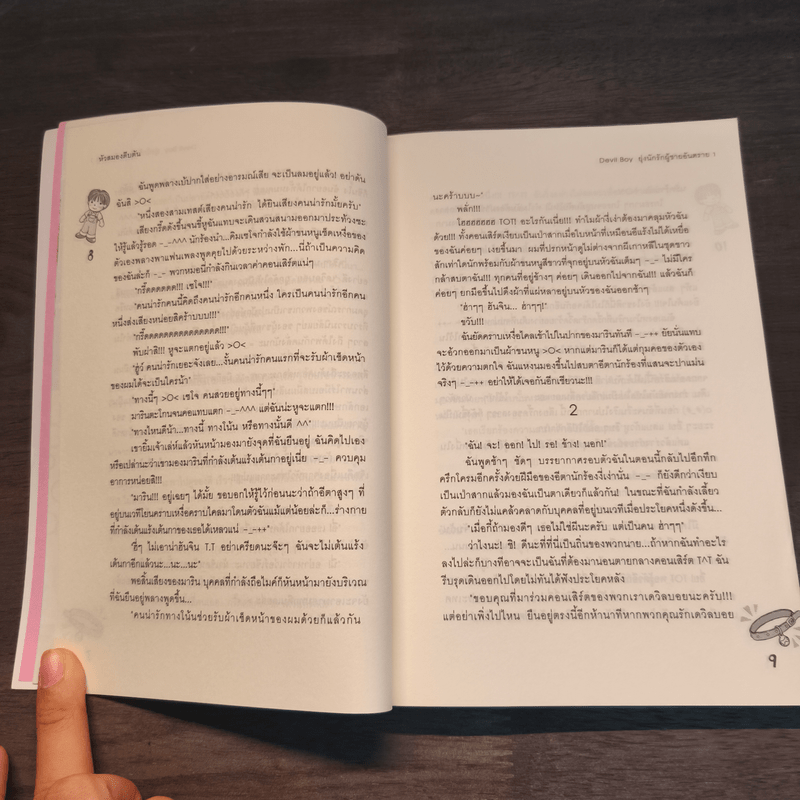 หัวสมองตีบตัน
ฉันพูดพลางเบ้ปากใส่อย่างอารมณ์เสีย จะเป็นลมอยู่แล้ว! อย่าดัน
ฉันสิ >O<
"หนึ่งสองสามเทสต์เสียงคนน่ารัก ได้ยินเสียงคนน่ารักมั้ยครับ"
เสียงกรี๊ดดังขึ้นจนขี้หูฉันแทบจะเดินสวนสนามออกมาประท้วงซะ
ให้รู้แล้วรู้รอด -_-^^^ นักร้องนำ...คิมเซโจกำลังใช้ผ้าขนหนูเช็ดเหงื่อของ
ตัวเองพลางพาแฟนเพลงพูดคุยไปด้วยระหว่างพัก...นี่ถ้าเป็นความคิด
ของฉันล่ะก็ -_- พวกหมอนี่กำลังกินเวลาค่าคอนเสิร์ตแน่ๆ
"กรี๊ดดดดดด!!! เซโจ!!!"
"คนน่ารักคนนี้คิดถึงคนน่ารักอีกคนหนึ่ง ใครเป็นคนน่ารักอีกคน
หนึ่งส่งเสียงหน่อยสิคร้าบบบ!!!"
"กรี๊ดดดดดดดดดดดดดดด!!!"
พับผ่าสิ!!! หูจะแตกอยู่แล้ว >O<
"ฮู่ว์ คนน่ารักเยอะจังเลย...งั้นคนน่ารักคนแรกที่จะรับผ้าเช็ดหน้า
ของผมได้จะเป็นใครน้า"
"ทางนี้ๆ >O< เซโจ คนสวยอยู่ทางนี้ๆๆ"
มารินตะโกนจนคอแทบแตก -_-^^^ แต่ฉันน่ะหูจะแตก!!!
"ทางไหนดีน้า...ทางนี้ ทางโน้น หรือทางนั้นดี ^^"
เขายิ้มเจ้าเล่ห์แล้วหันหน้ามองมายังจุดที่ฉันยืนอยู่ ฉันคิดไปเอง
หรือเปล่านะว่าเขามองมารินที่กำลังเต้นแร้งเต้นกาอยู่เนี่ย -_- ควบคุม
อาการหน่อยสิ!!!
"มาริน!!! อยู่เฉยๆ ได้มั้ย ขอบอกให้รู้ไว้ก่อนนะว่าถ้าอีตาสูงๆ ที่
อยู่บนเวทีโยนคราบเหงื่อคราบไคลมาโดนตัวฉันแม้แต่น้อยล่ะก็...ร่างกาย
ที่กำลังเต้นแร้งเต้นกาของเธอได้เหลวแน่ -_-++"
"ฮือๆ ไม่เอาน่าฮันจิน T.T อย่าเครียดนะจ๊ะๆ ฉันจะไม่เต้นแร้ง
เต้นกาอีกแล้วนะ...นะ...นะ"
พอสิ้นเสียงของมาริน บุคคลที่กำลังถือไมค์ก็หันหน้ามายังบริเวณ
ที่ฉันยืนอยู่พลางพูดขึ้น...
"คนน่ารักทางโน้นช่วยรับผ้าเช็ดหน้าของผมด้วยก็แล้วกัน
8
Devil Boy ยุ่งนักรักผู้ชายอันตราย 1
นะคร้าบบบ~"
พลั่ก!!!
โฮฮฮฮฮฮฮ TOT! อะไรกันเนี่ย!!! ทำไมผ้างี่เง่าต้องมาคลุมหัวฉัน
ด้วย!!! ทั้งคอนเสิร์ตเงียบเป็นเป่าสากเมื่อใบหน้าที่เหมือนผีแร้งไม่ได้เหยื่อ
ของฉันค่อยๆ เงยขึ้นมา ผมที่ปรกหน้าดูไม่ต่างจากผีเกาหลีในชุดขาว
สักเท่าใดนักพร้อมกับผ้าขนหนูสีขาวที่จุกอยู่บนหัวฉันเต็มๆ -_- ไม่มีใคร
กล้าสบตาฉัน!!! ทุกคนที่อยู่ข้างๆ ค่อยๆ เดินออกไปจากฉัน!!! แล้วฉันก็
ค่อยๆ ยกมือขึ้นไปดึงผ้าที่แผ่หลาอยู่บนหัวของฉันออกช้าๆ
"ฮ่าๆๆ ฮันจิน... ฮ่าๆๆ!"
ขวับ!!!
ฉันยัดคราบเหงื่อไคลเข้าไปในปากของมารินทันที -_-++ ยัยนั่นแทบ
จะอ้วกออกมาเป็นผ้าขนหนู >O< หากแต่มารินก็ได้แต่กุมคอของตัวเอง
ไว้ด้วยความตกใจ ฉันแหงนมองขึ้นไปสบตาอีตานักร้องที่แสนจะปาแม่น
จริงๆ -_-++ อย่าให้ได้เจอกันอีกเชียวนะ!!!
2
"ฉัน! จะ! ออก! ไป! รอ! ข้าง! นอก!"
ฉันพูดช้าๆ ชัดๆ บรรยากาศรอบตัวฉันในตอนนี้กลับไปอึกทึก
ครึกโครมอีกครั้งด้วยฝีมือของอีตานักร้องงี่เง่านั่น -_- ก็ยังดีกว่าเงียบ
เป็นเป่าสากแล้วมองฉันเป็นตาเดียวก็แล้วกัน! ในขณะที่ฉันกำลังเลี้ยว
ตัวกลับก็ยังไม่แคล้วคลาดกับบุคคลที่อยู่บนเวทีเมื่อประโยคหนึ่งดังขึ้น...
"เมื่อกี้ถ้ามองดีๆ เธอไม่ใช่ผีนะครับ แต่เป็นคน ฮ่าๆๆ"
ว่าไงนะ! ชิ! ดีนะที่ที่นี่เป็นถิ่นของพวกนาย...ถ้าหากฉันทำอะไร
ลงไปล่ะก็บางทีอาจจะเป็นฉันที่ต้องมานอนตายกลางคอนเสิร์ต T^T ฉัน
รีบรุดเดินออกไปโดยไม่ทันได้ฟังประโยคหลัง
"ขอบคุณที่มาร่วมคอนเสิร์ตของพวกเราเดวิลบอยนะครับ!!!
แต่อย่าเพิ่งไปไหน ยืนอยู่ตรงนี้อีกห้านาทีหากพวกคุณรักเดวิลบอย
9